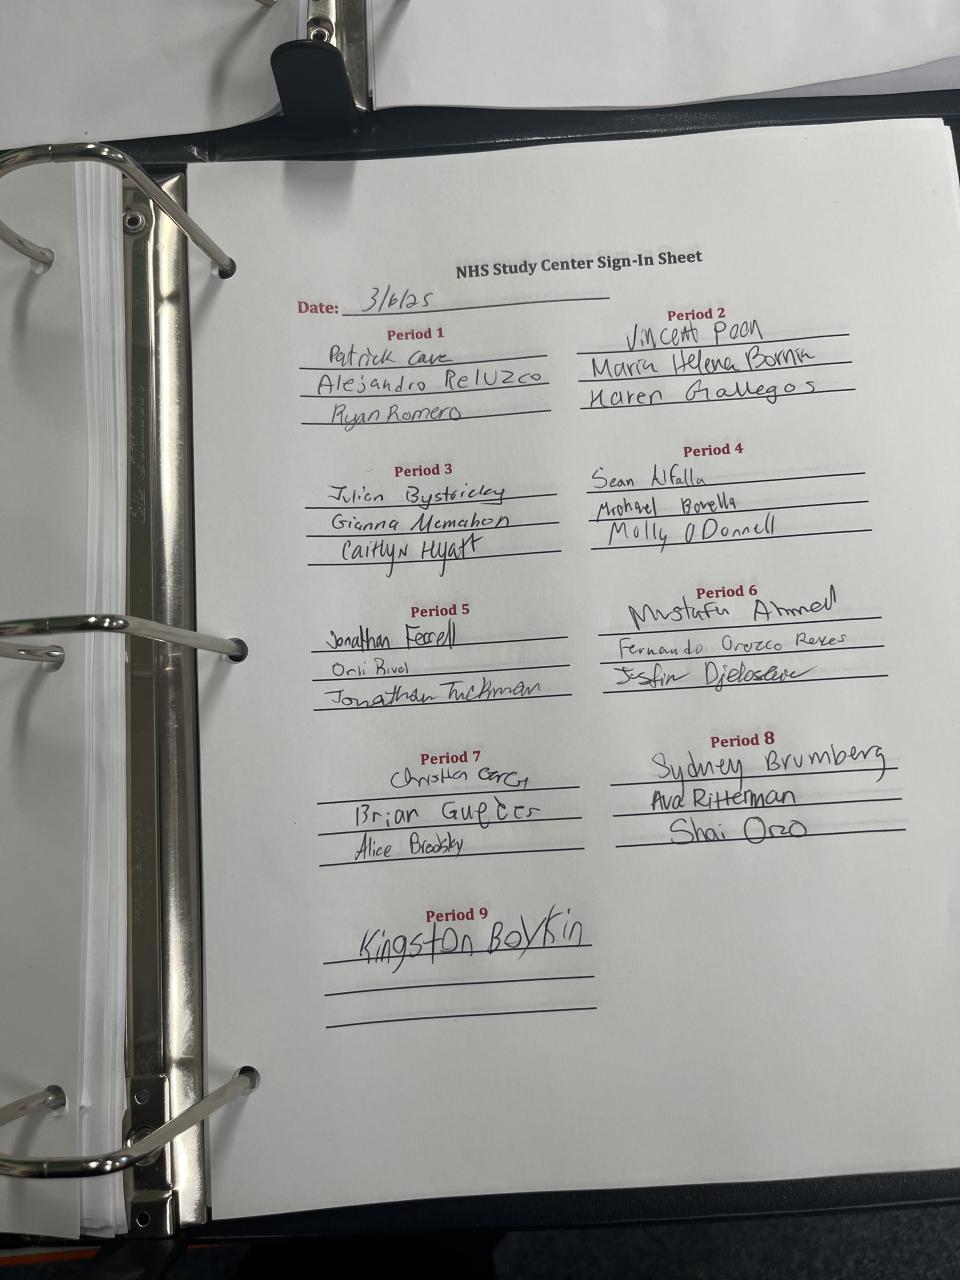 NHS Study Center Sign-In Sheet
Date: 3/6/25
Period 1
Patrick Cave
Alejandro Reluzco
Ryan Romero
Period 2
Vincent Peon
Maria Helena Bornia
Karen Gallegos
Period 3
Julian Bystricky
Gianna Mcmahon
Caitlyn Hyatt
Period 4
Sean Alfalla
Michael Borella
Molly O Donnell
Period 5
Jonathan Ferrell
Orli
Jonathan Tuckman
Period 6
Mustafa Ahmed
Fernando Orozco Reyes
Justin
Period 7
Christian
Brian
Alice Brodsky
Period 8
Sydney Brumberg
Ava Ritterman
Shai Orzo
Period 9
Kingston Boykin